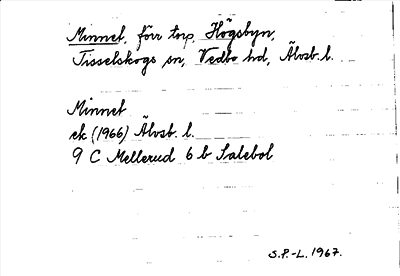 Minnet, förr torp, Högsbyn,
Tisselskogs sn, Vedbo hd, Älvsb. l.
Minnet
ek (1966) Älvsb. l.
9 C Mellerud 6 b Salebol
S.P.-L. 1967.